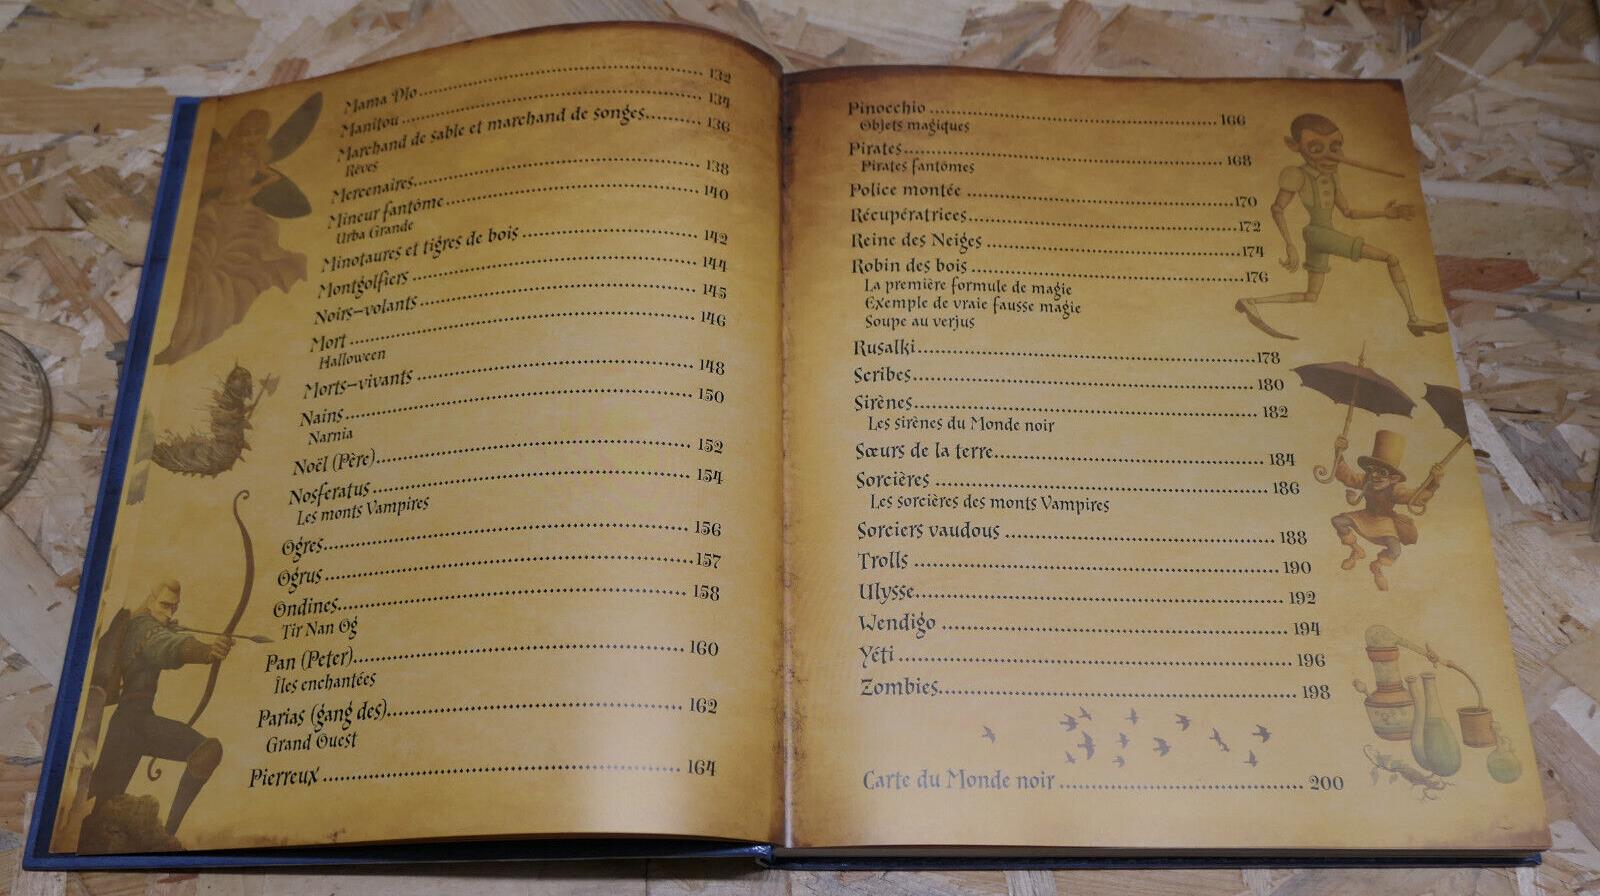 Mama Dlo 132
Manitou 134
Marchand de sable et marchand de songes 136
Rêves
Mercenaires 138
Mineur fantôme 140
Urba Grande
Minotaures et tigres de bois 142
Montgolfiers 144
Noirs-volants 145
Mort 146
Halloween
Morts-vivants 148
Nains 150
Narnia
Noël (Père) 152
Nosferatus 154
Les monts Vampires
Ogres 156
Ogrus 157
Ondines 158
Tir Nan Og
Pan (Peter) 160
Îles enchantées
Parias (gang des) 162
Grand Ouest
Pierreux 164
Pinocchio 166
Objets magiques
Pirates 168
Pirates fantômes
Police montée 170
Récupératrices 172
Reine des Neiges 174
Robin des bois 176
La première formule de magie
Exemple de vraie fausse magie
Soupe au verjus
Rusalki 178
Scribes 180
Sirènes 182
Les sirènes du Monde noir
Sœurs de la terre 184
Sorcières 186
Les sorcières des monts Vampires
Sorciers vaudous 188
Trolls 190
Ulysse 192
Wendigo 194
Yéti 196
Zombies 198
Carte du Monde noir 200